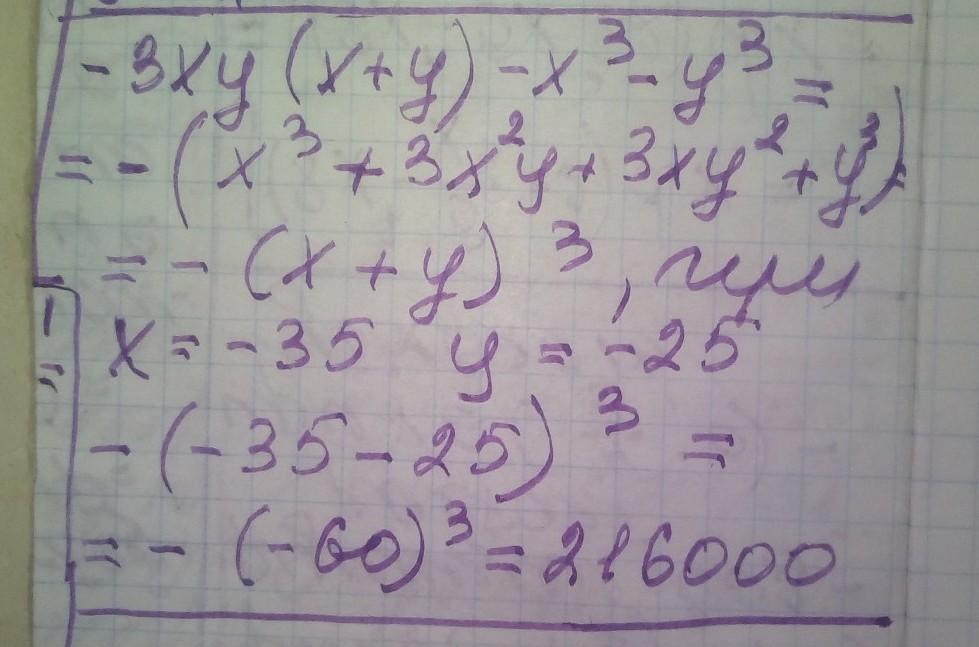 -3xy(x+y)-x³-y³=
=-(x³+3x²y+3xy²+y³)=
=-(x+y)³, при
x=-35 y=-25
-(-35-25)³=
=-(-60)³=216000